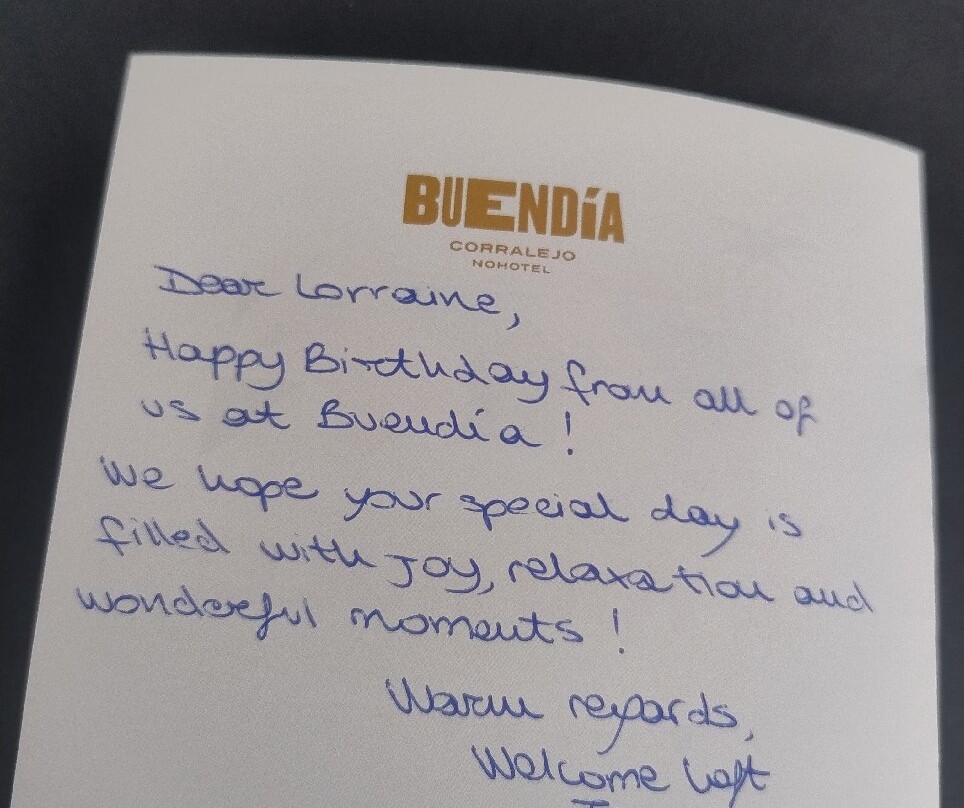 BUENDÍA
CORRALEJO
NOHOTEL
Dear Lorraine,
Happy Birthday from all of
us at Buendía!
We hope your special day is
filled with joy, relaxation and
wonderful moments!
Warm regards,
Welcome Loft